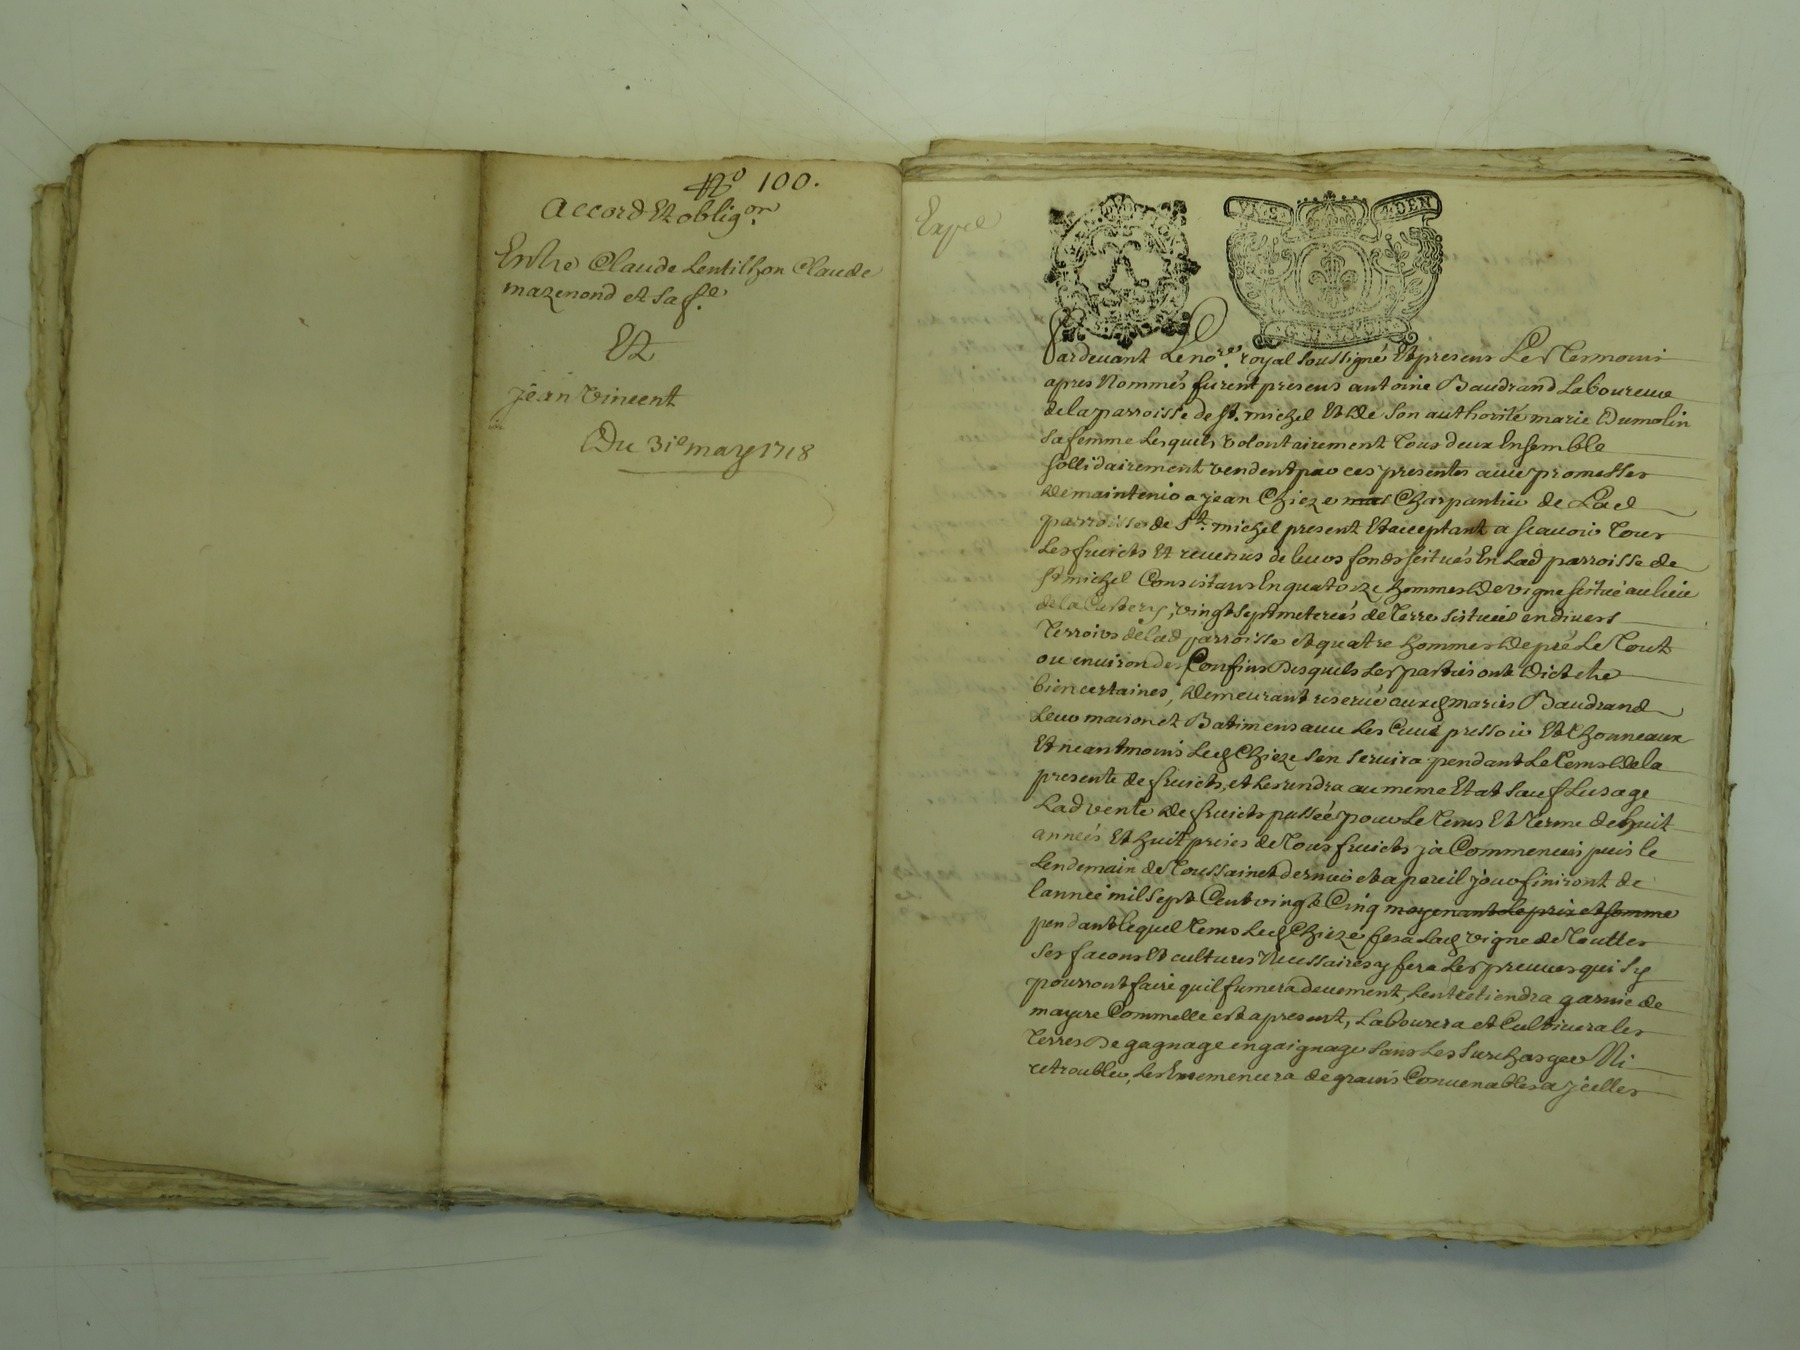 No 100.
Accord Et oblig.on
Entre Claude Lentilhon Claude
mazenond et sa f.e
Et
jean Vincent
Du 31e may 1718
Expé
Pardevant Le no.re royal Soussigné Et presens Les Temoins
apres Nommés furent presens antoine Baudrand Laboureur
de la parroisse de St. michel Et de Son authorité marie Dumolin
Sa femme Lesquels Volontairement Tous deux Ensemble
Sollidairement vendent par ces presentes avec promesses
de maintenir a jean Chieze Charpantier de Lad
parroisse de St. michel present Et acceptant a scavoir Tous
Les fruicts Et revenus de leurs fonds scitués En Lad parroisse de
St michel Consistans En quatorze hommes De vigne scitué au lieu
de la , vingt sept meterées de Terre Scituées en divers
Terroirs de lad parroisse et quatre hommes De pré Le Tout
ou environ des Confins Desquels Les parties ont Dict etre
bien certaines, Demeurant reservé auxd mariés Baudrand
Leur maison et Batimens avec Les Cuve pressoir Et Thonneaux
Et neantmoins Led Chieze Sen Servira pendant Le Tems De la
presente de fruicts, et Les rendra au meme Etat Sauf Lusage
Lad vente de fruicts passée pour Le Tems Et Terme de huit
années Et huit prises de Tous fruicts ja Commencées puis le
Lendemain de Toussainct dernier et a pareil jour finiront de
lannée mil Sept Cent vingt Cinq moyenant le prix et somme
pendant lequel Tems Led Chieze fera Lad vigne de Touttes
Ses facons Et cultures Necessaires y fera Les preuves qui Sy
pourront faire quil fumera deuement, Lentretiendra garnie de
mayere Comme elle est a present, Labourera et Cultivera les
Terres De gagnage en gaignage Sans Les Surcharger Ni
retroubler, Les Ensemencera de grains Convenables a jcelles